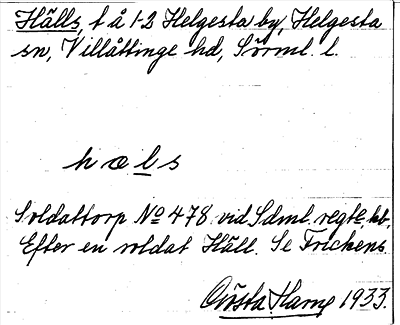 Hälls, t å 1-2 Helgesta by, Helgesta
sn, Villåttinge hd, Sörml. l.
hæls
Soldattorp No 478 vid Sdml. regte kb.
Efter en soldat Häll. Se Frickens.
Gösta Harne 1933.